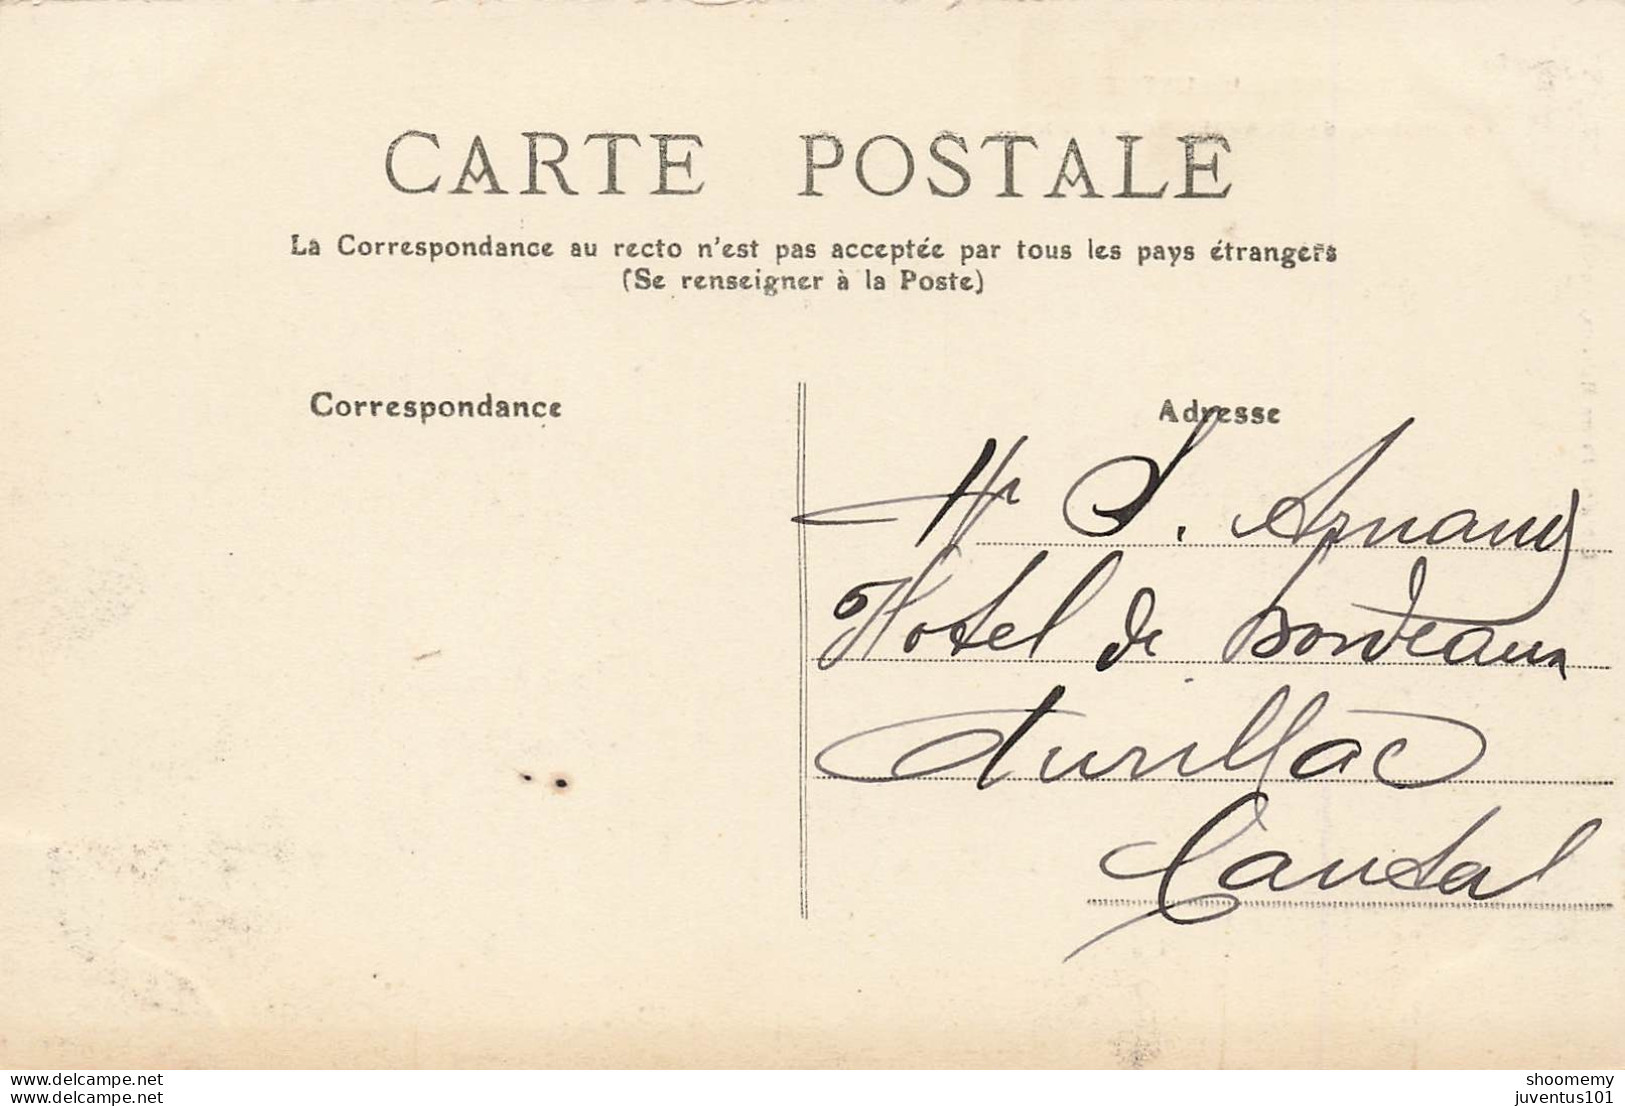 CARTE POSTALE
La Correspondance au recto n'est pas acceptée par tous les pays étrangers
(Se renseigner à la Poste)
Correspondance
Adresse
Mr S. Arnaud
Hotel de Bordeaux
Aurillac
Cantal
www.delcampe.net
shoomemy
juventus101